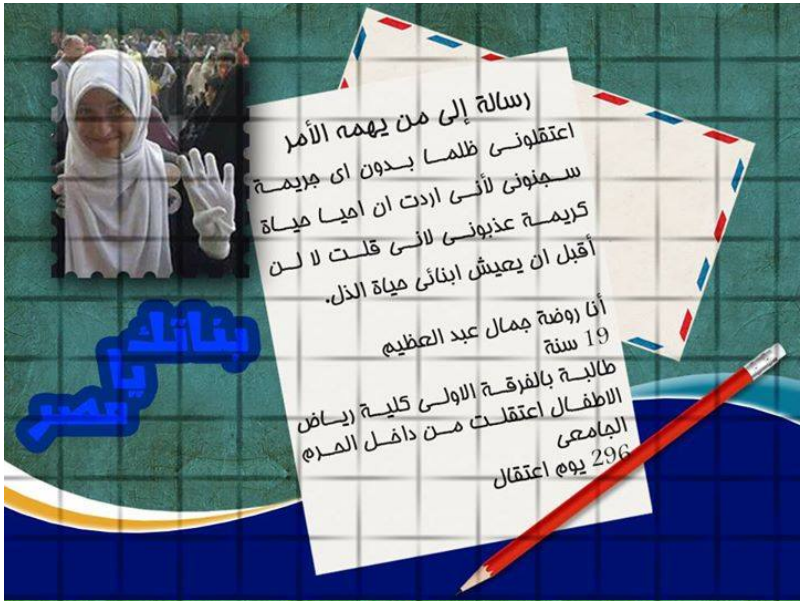 رسالة إلى من يهمه الأمر
اعتقلونى ظلما بدون اى جريمة
سجنونى لأنى اردت ان احيا حياة
كريمة عذبونى لانى قلت لا لن
أقبل ان يعيش ابنائى حياة الذل.
أنا روضة جمال عبد العظيم
19 سنة
طالبة بالفرقة الاولى كلية رياض
الاطفال اعتقلت من داخل الحرم
الجامعى
296 يوم اعتقال
بناتك
يا
مصر